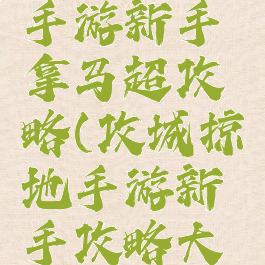 手游新手
拿马超攻
略(攻城掠
地手游新
手攻略大